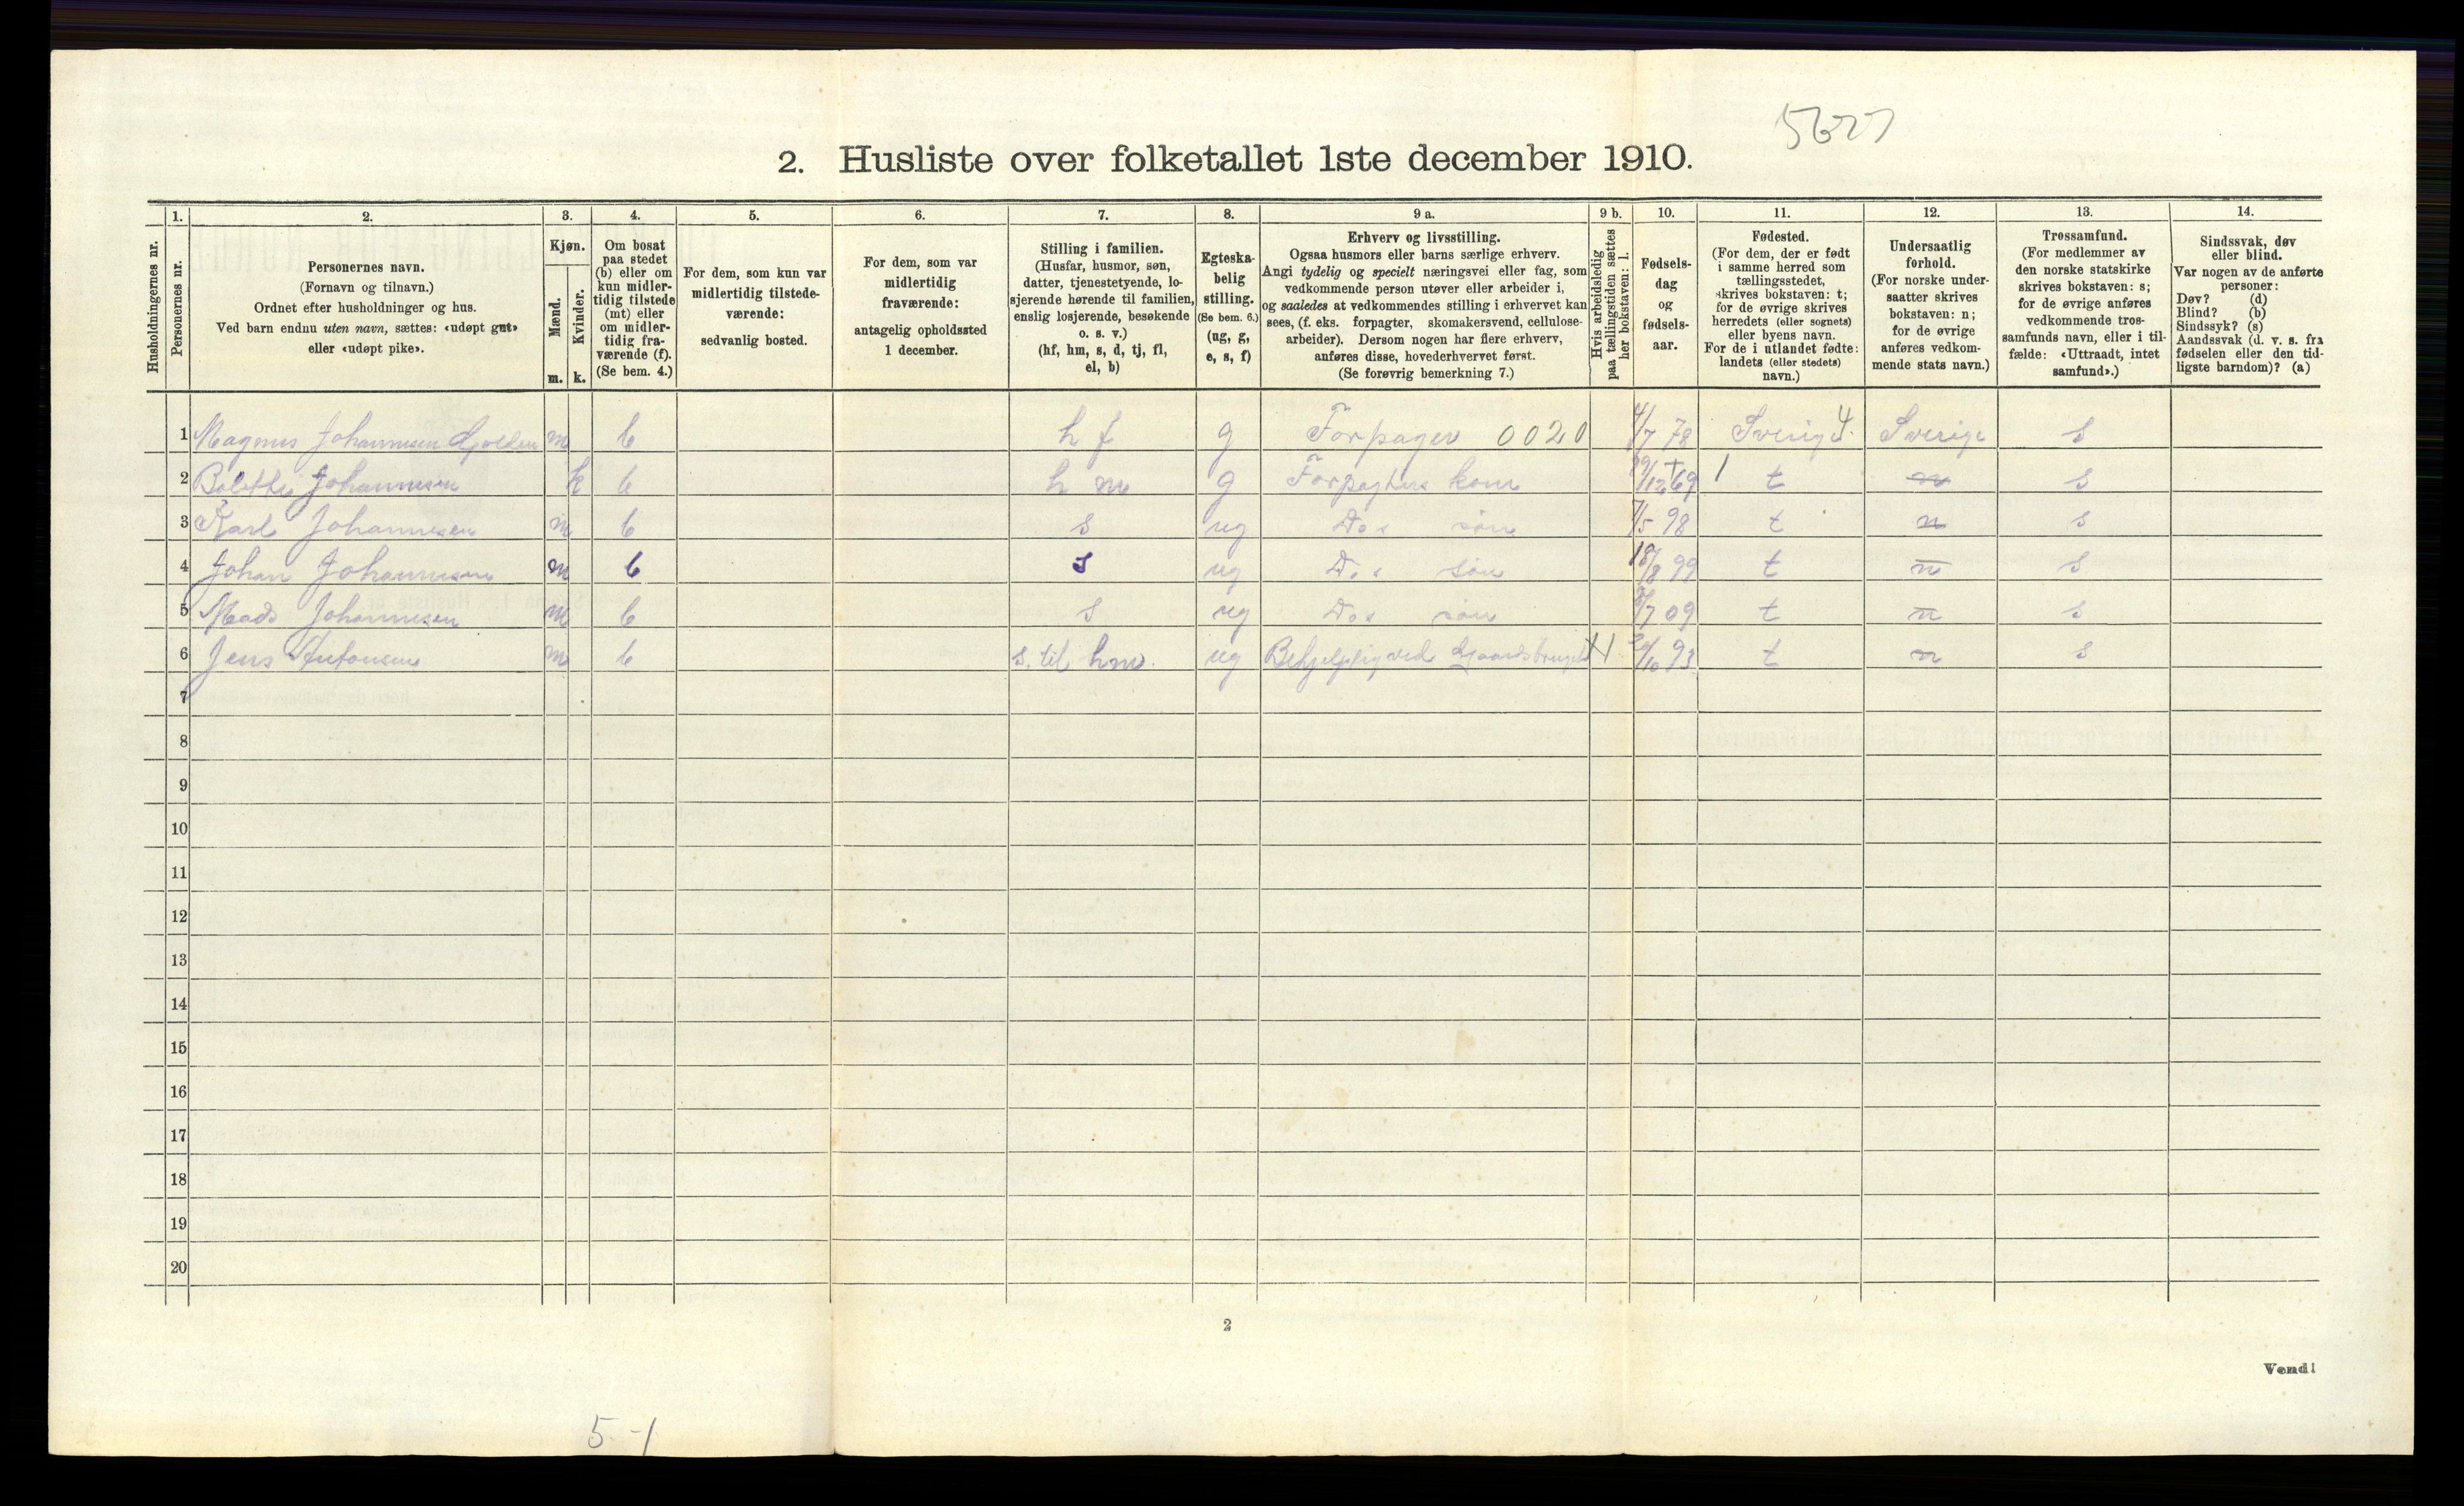 5627
2. Husliste over folketallet 1ste december 1910.
Husholdningernes nr.
1.
Personernes nr.
2.
Personernes navn.
(Fornavn og tilnavn.)
Ordnet efter husholdninger og hus.
Ved barn endnu uten navn, sættes: «udøpt gut»
eller «udøpt pike».
3.
Kjøn.
Mænd.
Kvinder.
m. k.
4.
Om bosat
paa stedet
(b) eller om
kun midler-
tidig tilstede
(mt) eller
om midler-
tidig fra-
værende (f).
(Se bem. 4.)
5.
For dem, som kun var
midlertidig tilstede-
værende:
sedvanlig bosted.
6.
For dem, som var
midlertidig
fraværende:
antagelig opholdssted
1 december.
7.
Stilling i familien.
(Husfar, husmor, søn,
datter, tjenestetyende, lo-
sjerende hørende til familien,
enslig losjerende, besøkende
o. s. v.)
(hf, hm, s, d, tj, fl,
el, b)
8.
Egteska-
belig
stilling.
(Se bem. 6.)
(ug, g,
e, s, f)
9 a.
Erhverv og livsstilling.
Ogsaa husmors eller barns særlige erhverv.
Angi tydelig og specielt næringsvei eller fag, som
vedkommende person utøver eller arbeider i,
og saaledes at vedkommendes stilling i erhvervet kan
sees, (f. eks. forpagter, skomakersvend, cellulose-
arbeider). Dersom nogen har flere erhverv,
anføres disse, hovederhvervet først.
(Se forøvrig bemerkning 7.)
9 b.
Hvis arbeidsledig
paa tællingstiden sættes
her bokstaven: l.
10.
Fødsels-
dag
og
fødsels-
aar.
11.
Fødested.
(For dem, der er født
i samme herred som
tællingsstedet,
skrives bokstaven: t;
for de øvrige skrives
herredets (eller sognets)
eller byens navn.
For de i utlandet fødte:
landets (eller stedets)
navn.)
12.
Undersaatlig
forhold.
(For norske under-
saatter skrives
bokstaven: n;
for de øvrige
anføres vedkom-
mende stats navn.)
13.
Trossamfund.
(For medlemmer av
den norske statskirke
skrives bokstaven: s;
for de øvrige anføres
vedkommende tros-
samfunds navn, eller i til-
fælde: «Uttraadt, intet
samfund».)
14.
Sindssvak, døv
eller blind.
Var nogen av de anførte
personer:
Døv? (d)
Blind? (b)
Sindssyk? (s)
Aandssvak (d. v. s. fra
fødselen eller den tid-
ligste barndom)? (a)
1 Magnus Johannesen m b h f g Forpager 0020 4/7 78 Sverige 4. Sverige s
2 Johannesen k b h m g Forpagters kone /12 69 1 t n s
3 Karl Johannesen m b s ug Do s søn 7/5 98 t n s
4 Johan Johannesen m b s ug Do s søn 18/8 99 t n s
5 Mads Johannesen m b s ug Do s søn /7 09 t n s
6 Jens Antonsen m b s. til hm. ug Behjelplig ved Gaardsbruget /10 93 t n s
7
8
9
10
11
12
13
14
15
16
17
18
19
20
2
Vend!
5-1